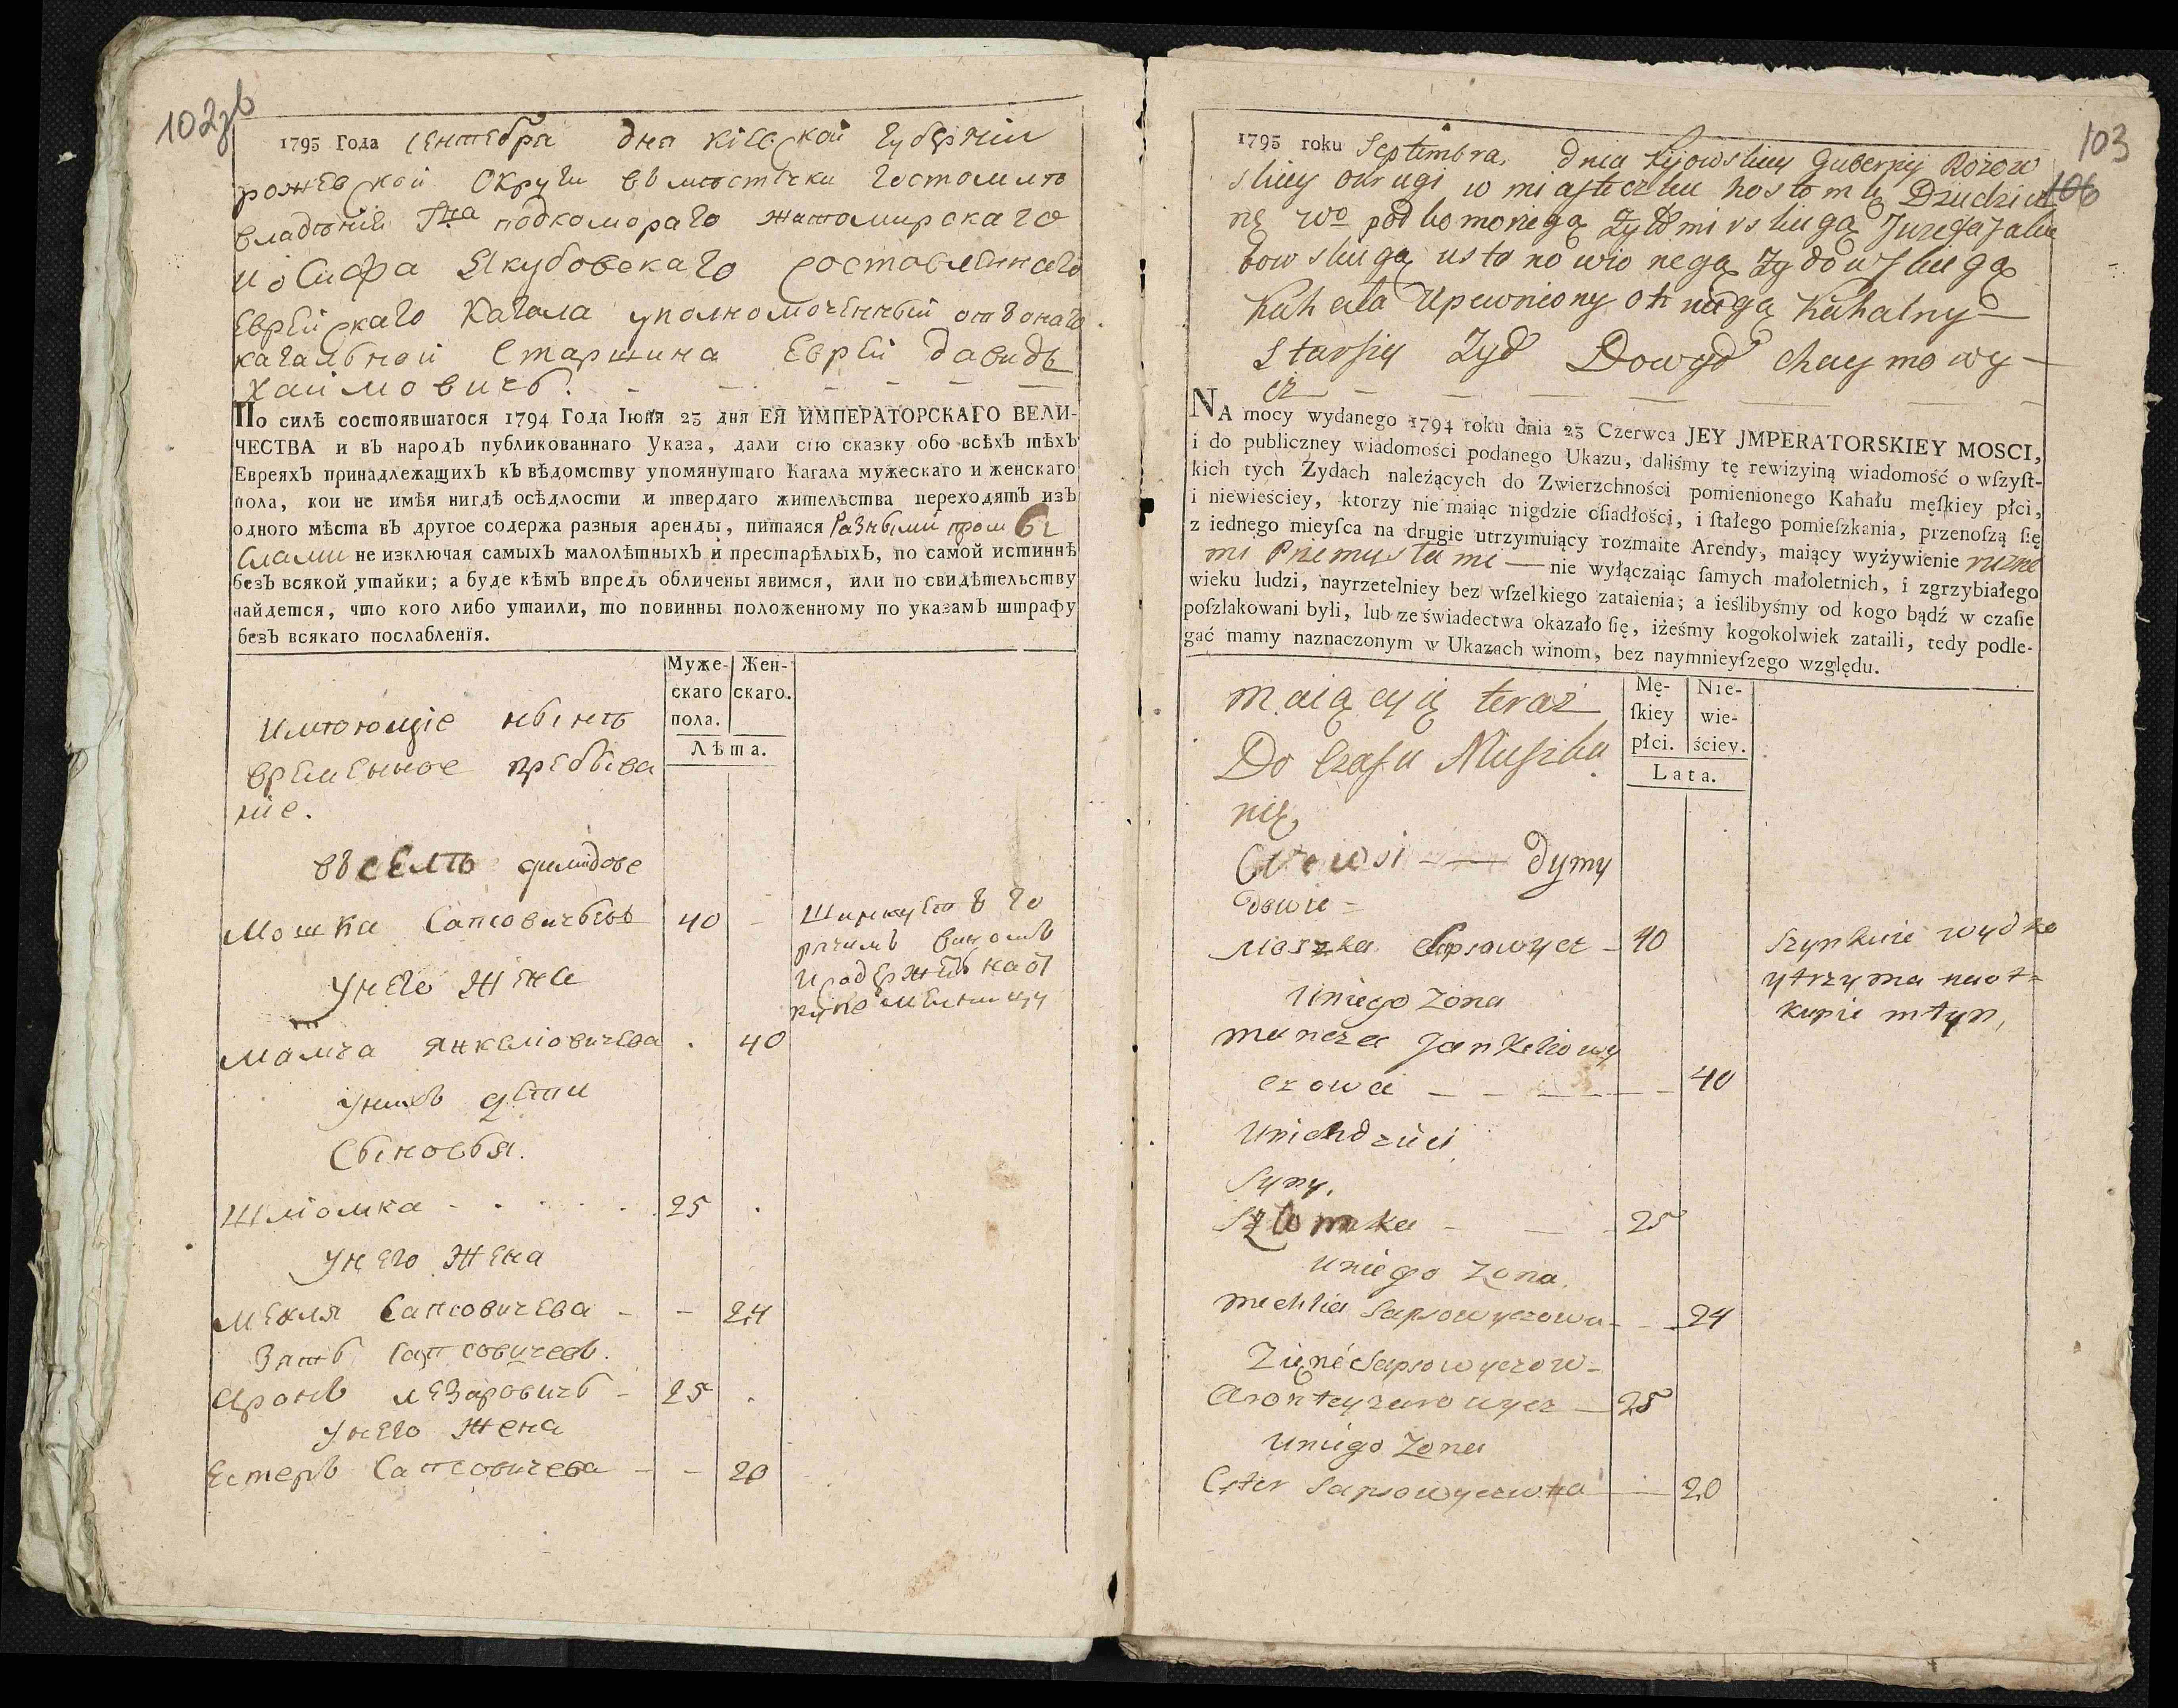 102зв
1795 Года сентебря дня кіевской губерніи
рожевской округи в местечки гостомле
владеніи Гна подкомораго житомирскаго
иосифа Якубовскаго составленнаго
еврейскаго кагала уполномоченный от онаго
кагальной старшина еврей давидъ
хаимовичъ.
По силѣ состоявшагося 1794 Года Іюня 23 дня ЕЯ ИМПЕРАТОРСКАГО ВЕЛИ-
ЧЕСТВА и въ народъ публикованнаго Указа, дали сію сказку обо всѣхъ тѣхъ
Евреяхъ принадлежащихъ къ вѣдомству упомянутаго Кагала мужескаго и женскаго
пола, кои не имѣя нигдѣ осѣдлости и твердаго жительства переходятъ изъ
одного мѣста въ другое содержа разныя аренды, питаяся разными промы
слами не изключая самыхъ малолѣтныхъ и престарѣлыхъ, по самой истиннѣ
безъ всякой утайки; а буде кѣмъ впредь обличены явимся, или по свидѣтельству
найдется, что кого либо утаили, то повинны положенному по указамъ штрафу
безъ всякаго послабленія.
Муже- Жен-
скаго скаго.
пола.
Лѣта.
имеющіе ныне
временное пребыва
ніе.
въ селе
Мошка 40 - шинкует го
рячимъ виномъ
у него жена и содержитъ на от
купе мелницу
Малча Янкелiовичева . 40
у нихъ дети
Сыновья.
Шліомка - . . . . 25 .
у него жена
Мехля Сапсовичева - - 24
Зять Сапсовичевъ.
Аронъ лезаровичъ - 25 .
у него жена
Естеръ Сапсовичева - - 20
103
106
1795 roku Septembra, dnia Kijowskiey Guberniy Rożow
skiey okrugi w miasteczku hostomlu Dziedzict
wo podkomorzego Zytomirskiego Juzefa Jaku
bowskiego ustanowionego Zydowskiego
Kahala Upewniony ot niego Kahalny
Starszy Zyd Dowyd Chaymowy-
cz
NA mocy wydanego 1794 roku dnia 23 Czerwca JEY JMPERATORSKIEY MOSCI,
i do publiczney wiadomości podanego Ukazu, daliśmy tę rewizyiną wiadomość o wſzyſt-
kich tych Zydach należących do Zwierzchności pomienionego Kahału męſkiey płci,
i niewieściey, ktorzy nie maiąc nigdzie oſiadłości, i ſtałego pomieſzkania, przenoſzą ſię
z iednego mieyſca na drugie utrzymuiący rozmaite Arendy, maiący wyżywienie rozne
mi Przemysłami — nie wyłączaiąc ſamych małoletnich, i zgrzybiałego
wieku ludzi, nayrzetelniey bez wſzelkiego zataienia; a ieślibyśmy od kogo bądź w czaſie
poſzlakowani byli, lub ze świadectwa okazało ſię, iżeśmy kogokolwiek zataili, tedy podle-
gać mamy naznaczonym w Ukazach winom, bez naymnieyſzego względu.
Mę- Nie-
ſkiey wie-
płci. ściey.
Lata.
maiącyię teraz
Do Czasu Mieszka
nie,
wsi — dymy
dowie -
Moszka Sapsowycz - 40 szynkuie wydko
ytrzyma naot-
Uniego zona kupie młyn,
Mancza Jankeliowy
czowa - - - - - 40
Unich dzieci
Syny.
Szlomka - - - 25
uniego zona
Mechlia Sapsowyczowa - - - 24
Zięć Sapsowyczow-
Aron Leyzarowycz - 25
Uniego zona
Ester Sapsowyczowna - 20